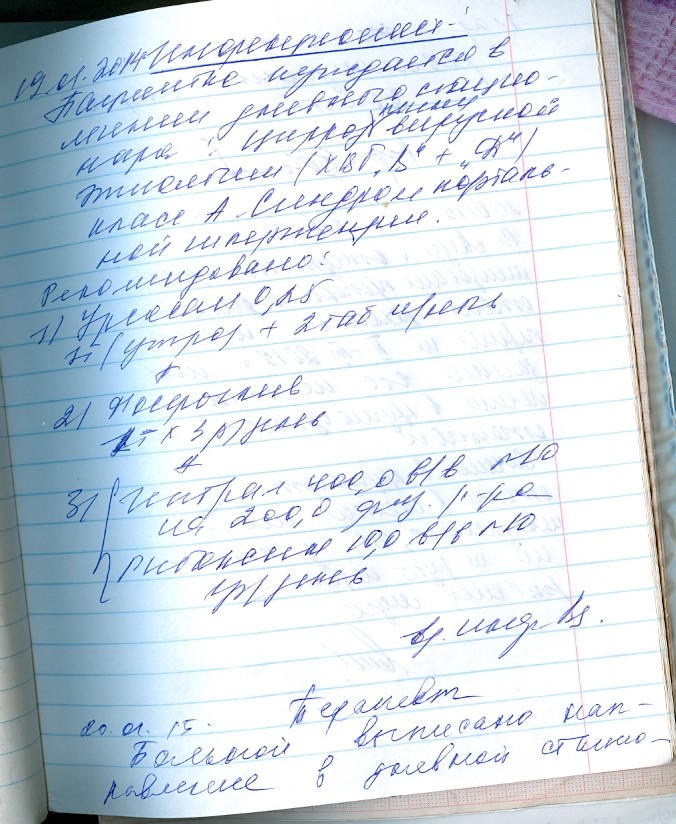 19.01.2014 Инфекционист
Пациентка нуждается в
лечении дневного стацио-
нара: Цирроз печени вирусной
этиологии (ХВГ "В" + "Д")
класс А. Синдром порталь-
ной гипертензии.
Рекомендовано:
1) Урсосан 0,25
1т (утро) + 2 таб
2)
1т х 3 р/день
3) Гептрал 400,0 в/в
на 200,0 физ. р-ра
Рибоксин 10,0 в/в
1р/день
вр. инф.
20.01.15. Терапевт
Больной выписано нап-
равление в дневной стацио-